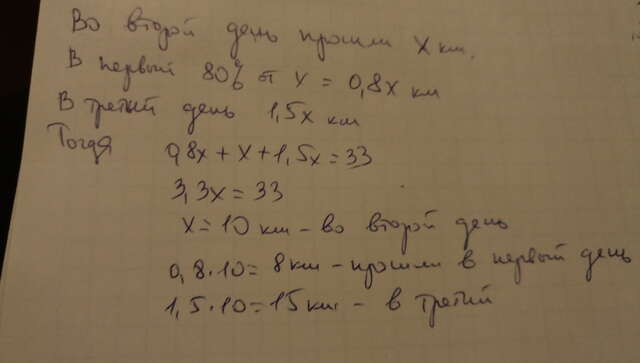 Во второй день прошли x км.
В первый 80% от x = 0,8x км
В третий день 1,5x км
Тогда
0,8x + x + 1,5x = 33
3,3x = 33
x = 10 км - во второй день
0,8·10 = 8 км - прошли в первый день
1,5·10 = 15 км - в третий